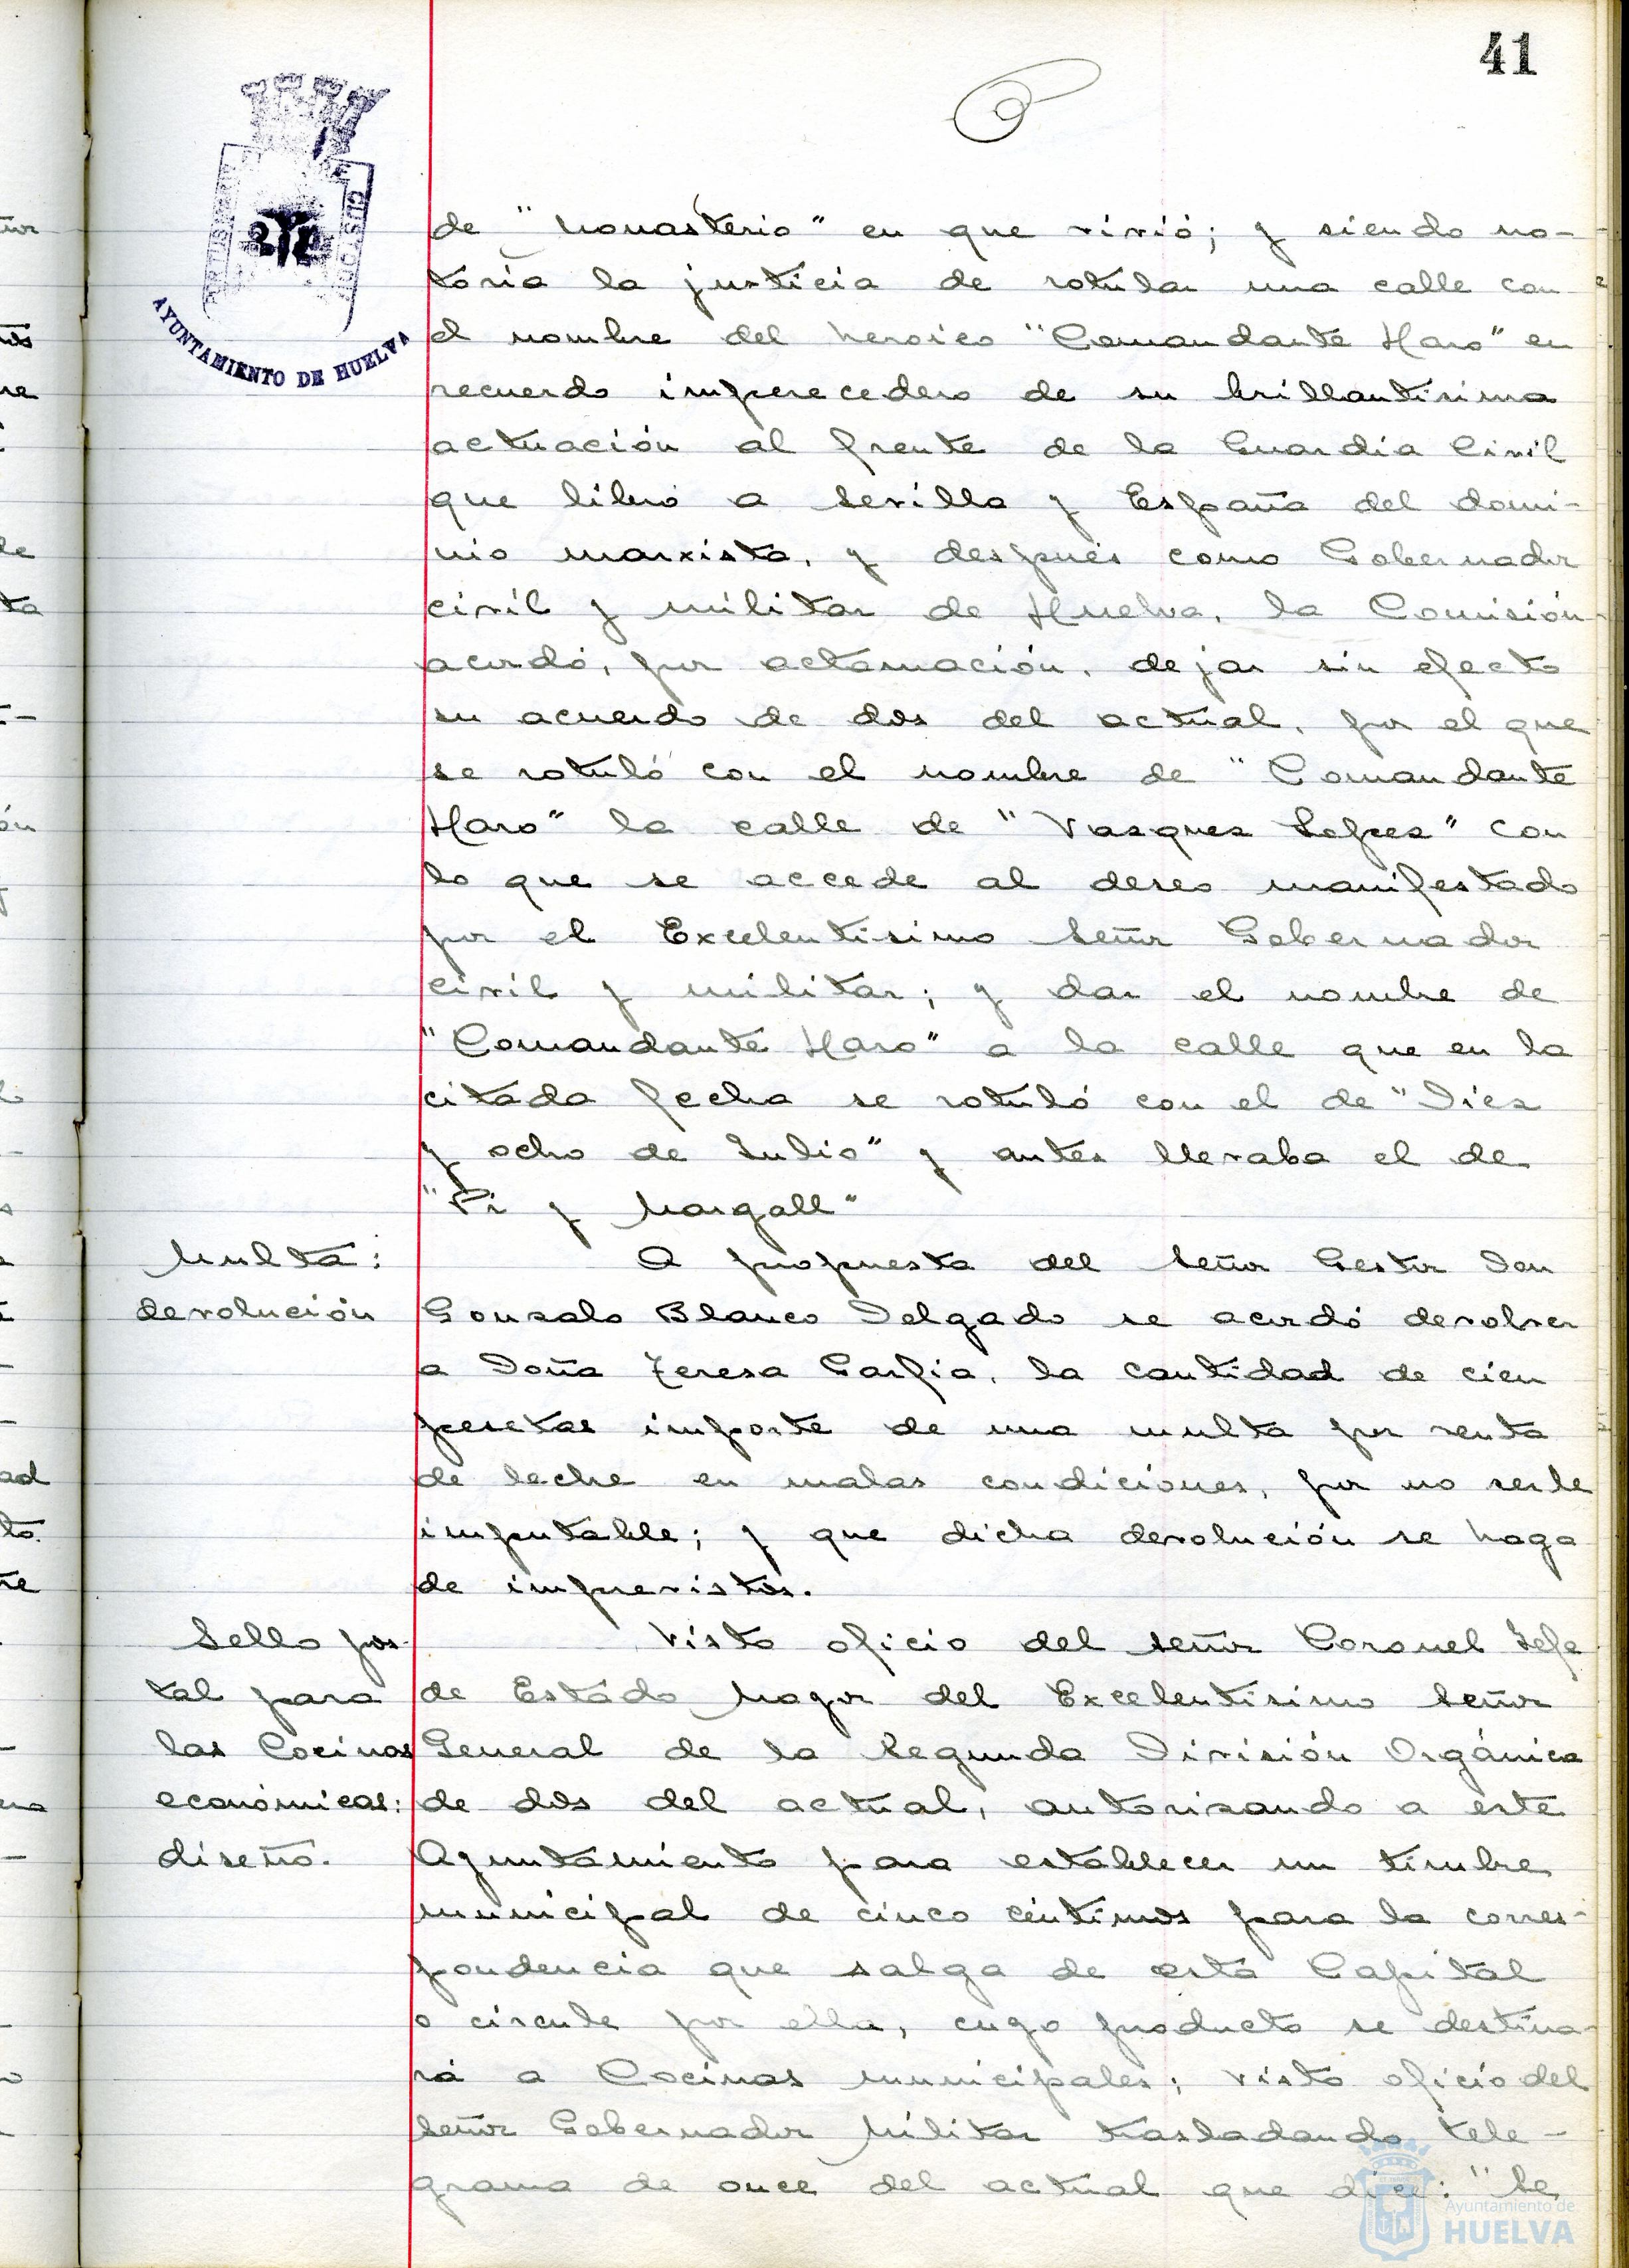 41
AYUNTAMIENTO DE HUELVA
de "Monasterio" en que vivió; y siendo no-
toria la justicia de rotular una calle con
el nombre del heroico "Comandante Haro" en
recuerdo imperecedero de su brillantisima
actuación al frente de la Guardia Civil
que libró a Sevilla y España del domi-
nio marxista, y después como Gobernador
civil y militar de Huelva, la Comisión
acordó, por aclamación, dejar sin efecto
su acuerdo de dos del actual, por el que
se rotuló con el nombre de "Comandante
Haro" la calle de "Vasques Lopez" con
lo que se accede al deseo manifestado
por el Excelentisimo Señor Gobernador
civil y militar; y dar el nombre de
"Comandante Haro" a la calle que en la
citada fecha se rotuló con el de "Diez
y ocho de Julio" y antes llevaba el de
"Pi y Margall"
Multa:
devolución
A propuesta del Señor Gestor Don
Gonzalo Blanco Delgado se acordó devolver
a Doña Teresa Garfia, la cantidad de cien
pesetas importe de una multa por venta
de leche en malas condiciones, por no serle
imputable; y que dicha devolución se haga
de imprevistos.
Sello pos-
tal para
las Cocinas
económicas:
diseño.
Visto oficio del Señor Coronel Jefe
de Estado Mayor del Excelentisimo Señor
General de la Segunda División Orgánica
de dos del actual, autorizando a este
Ayuntamiento para establecer un timbre
municipal de cinco céntimos para la corres-
pondencia que salga de esta Capital
o circule por ella, cuyo producto se destina-
rá a Cocinas municipales; visto oficio del
Señor Gobernador Militar trasladando tele-
grama de once del actual que dice: "Se
Ayuntamiento de
HUELVA